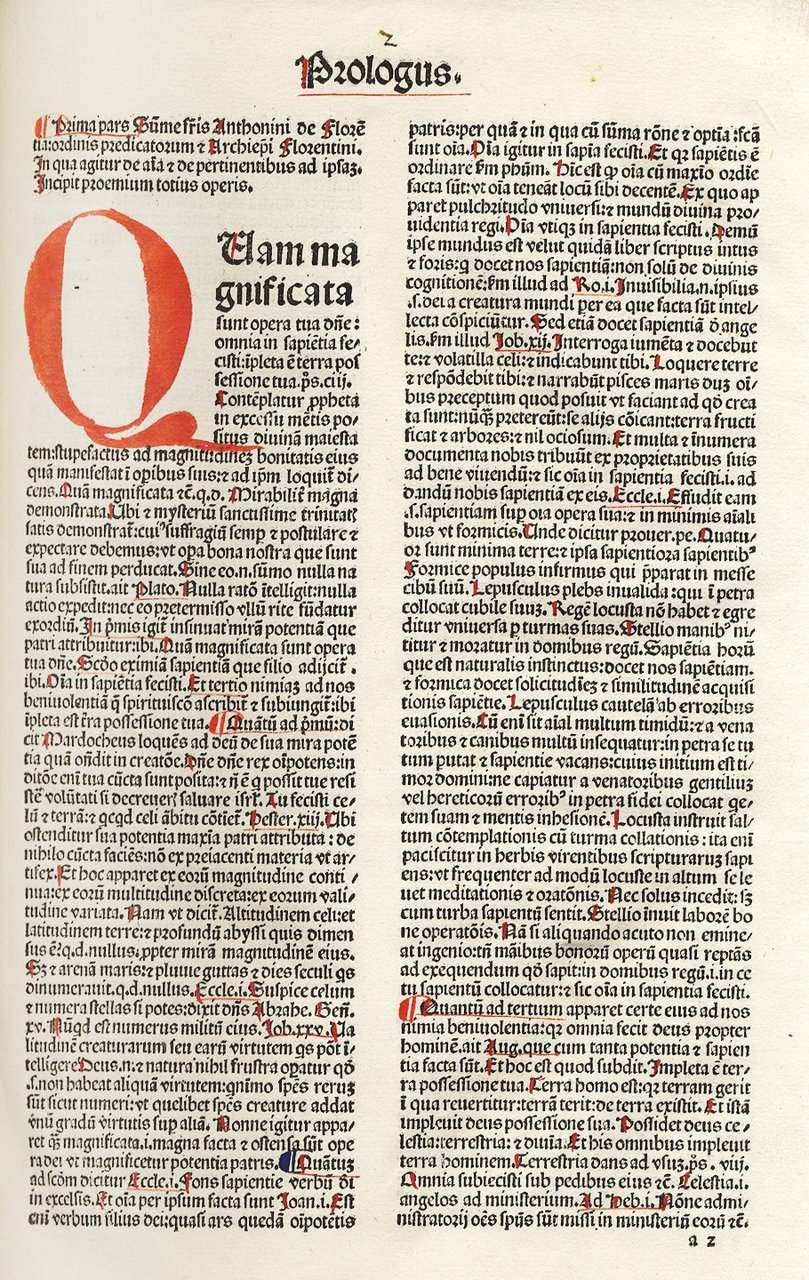 2
Prologus.
¶ Prima pars Sūme fr̄is Anthonini de Florē
tia:ordinis predicatorum ⁊ Archiepi Florentini.
In qua agitur de aīa ⁊ de pertinentibus ad ipsaꝫ.
Incipit proemium totius operis.
QUam ma
gnificata
sunt opera tua dn̄e:
omnia in sapiētia fe/
cisti:īpleta ē terra pos
sessione tua.p̄s.ciij.
Contēplatur ꝓpheta
in excessu mētis po/
situs diuinā maiesta
tem:stupefactus ad magnitudineꝫ bonitatis eius
quā manifestat ī oꝑibus suis:⁊ ad ip̄m loquit̄ di/
cens.Quā magnificata ⁊c̄.q.d.Mirabilit̄ magna
demonstrata.Ubi ⁊ mysteriū sanctissime trinitatꝭ
satis demonstrat̄:cuiꝰ suffragiū semꝑ ⁊ postulare ⁊
expectare debemus:vt oꝑa bona nostra que sunt
sua ad finem perducat.Sine eo.n.sūmo nulla na
tura subsistit.ait Plato.Nulla ratō ītelligit:nulla
actio expedit:nec eo pretermisso vllū rite fūdatur
exordiū.In p̄mis igit̄ insinuat̄ mirā potentiā que
patri attribuitur:ibi.Quā magnificata sunt opera
tua dn̄e.Scd̄o eximiā sapientiā que filio adijcit̄.
ibi.Oīa in sapiētia fecisti.Et tertio nimiaꝫ ad nos
beniuolentiā q̄ spirituiscō ascribit̄ ⁊ subiungit̄:ibi
īpleta est t̄ra possessione tua.¶ Quātū ad p̄mū:di
cit Mardocheus loquēs ad deū de sua mira potē
tia quā on̄dit in creatōe.Dn̄e dn̄e rex oīpotens:in
ditōe enī tua cūcta sunt posita:⁊ nō ē q̄ possit tue resi
stē volūtati si decreuerꝭ saluare isrl̄.Tu fecisti ce/
lū ⁊ terrā:⁊ qcqd celi ābitu cōtiet̄.Hester.xiij.Ubi
ostenditur sua potentia maxīa patri attributa : de
nihilo cūcta faciēs:nō ex preiacenti materia vt ar/
tifex.Et hoc apparet ex eorū magnitudine conti /
nua:ex eorū multitudine discreta:ex eorum vali/
tudine variata.Nam vt dicit̄.Altitudinem celi:et
latitudinem terre:⁊ profundū abyssi quis dimen
sus ē?q.d.nullus.ꝓpter mirā magnitudinē eius.
Sꝫ ⁊ arenā maris:⁊ pluuie guttas ⁊ dies seculi q̄s
dinumerauit.q.d.nullus.Eccle.i.Suspice celum
⁊ numera stellas si potes:dixit dn̄s Abrahe. Gen̄.
xv.Nūqd est numerus militū eius.Job.xxv.Va
litudinē creaturarum seu earū virtutem q̄s pōt ī/
telligere?Deus.n.⁊ natura nihil frustra oꝑatur q̄d
.s.non habeat aliquā virtutem:qnīmo sp̄es reruꝫ
sūt sicut numeri:vt quelibet sp̄es creature addat
vnū gradū virtutis suꝑ aliā. Nonne igitur appa/
ret qꝫ magnificata.i.magna facta ⁊ ostensa sūt ope
ra dei vt magnificetur potentia patris.¶ Quātuꝫ
ad scd̄m dicitur Eccle.i.Fons sapientie verbū di
in excelsis.Et oīa per ipsum facta sunt Joan.i.Est
enī verbum filius dei:quasi ars quedā oīpotētis
patris:per quā ⁊ in qua cū sūma rōne ⁊ optīa :fcā
sunt oīa.Oīa igitur in sapīa fecisti.Et qꝛ sapiētis ē
ordinare ẜm phūm. Hīc est ꝙ oīa cū maxīo ordīe
facta sūt:vt oīa teneāt locū sibi decentē.Ex quo ap
paret pulchritudo vniuersi:⁊ mundū diuina pro/
uidentia regi.Oīa vtiqꝫ in sapientia fecisti.Demū
ipse mundus est velut quidā liber scriptus intus
⁊ foris:q̄ docet nos sapientiā:non solū de diuinis
cognitionē:ẜm illud ad Ro.i.Inuisibilia.n.ipsius
.s.dei a creatura mundi per ea que facta sūt intel/
lecta cōspiciūtur.Sed etiā docet sapientiā d̄ ange
lis.ẜm illud Job.xij.Interroga iumēta ⁊ docebūt
te:⁊ volatilla celi:⁊ indicabunt tibi.Loquere terre
⁊ respōdebit tibi:⁊ narrabūt pisces maris quꝫ oī/
bus preceptum quod posuit vt faciant ad qd̄ crea
ta sunt:nūqꝫ pretereūt:se alijs cōicant:terra fructi
ficat ⁊ arbores:⁊ nil ociosum.Et multa ⁊ īnumera
documenta nobis tribuūt ex proprietatibus suis
ad bene viuendū:⁊ sic oīa in sapientia fecisti.i. ad
dandū nobis sapientiā ex eis.Eccle.i.Effudit eam
.s.sapientiam suꝑ oīa opera sua:⁊ in minimis aīali
bus vt formicis.Unde dicitur prouer.pe.Quatu/
or sunt minima terre:⁊ ipsa sapientiora sapientibꝰ
Formice populus infirmus qui p̄parat in messe
cibū suū.Lepusculus plebs inualida :qui ī petra
collocat cubile suuꝫ.Regē locusta nō habet ⁊ egre
ditur vniuersa ꝑ turmas suas.Stellio manibꝰ ni/
titur ⁊ moratur in domibus regū.Sapiētia horū
que est naturalis instinctus:docet nos sapientiam.
⁊ formica docet solicitudīeꝫ ⁊ similitudinē acquisi
tionis sapiētie.Lepusculus cautelā ab erroribus
euasionis.Cū enī sit aīal multum timidū:⁊ a vena
toribus ⁊ canibus multū insequatur:in petra se tu
tum putat ⁊ sapientie vacans:cuius initium est ti/
mor domini:ne capiatur a venatoribus gentiliuꝫ
vel hereticorū erroribꝰ in petra fidei collocat qe/
tem suam ⁊ mentis inhesionē.Locusta instruit sal/
tum cōtemplationis cū turma collationis : ita enī
paciscitur in herbis virentibus scripturaruꝫ sapi
ens:vt frequenter ad modū locuste in altum se le
uet meditationis ⁊ oratōnis.Nec solus incedit: sꝫ
cum turba sapientū sentit.Stellio īnuit laborē bo
ne operatōis.Nā si aliquando acuto non emine/
at ingenio:tn̄ māibus bonorū operū quasi reptās
ad exequendum qd̄ sapit:in domibus regū.i.in ce
tu sapientū collocatur:⁊ sic oīa in sapientia fecisti.
¶ Quantū ad tertium apparet certe eius ad nos
nimia beniuolentia:qꝛ omnia fecit deus propter
hominē.ait Aug.que cum tanta potentia ⁊ sapien
tia facta sūt.Et hoc est quod subdit.Impleta ē ter/
ra possessione tua.Terra homo est:qꝛ terram gerit
ī qua reuertitur:terrā terit:de terra existit. Et istā
impleuit deus possessione sua.Possidet deus ce/
lestia:terrestria:⁊ diuīa.Et his omnibus impleuit
terra hominem.Terrestria dans ad vsuꝫ.p̄s . viij.
Omnia subiecisti sub pedibus eius ⁊c̄. Celestia.i.
angelos ad ministerium.Ad Heb.i.Nōne admi/
nistratorij oēs sp̄ūs sūt missi in ministeriū eorū ⁊c̄.
a 2